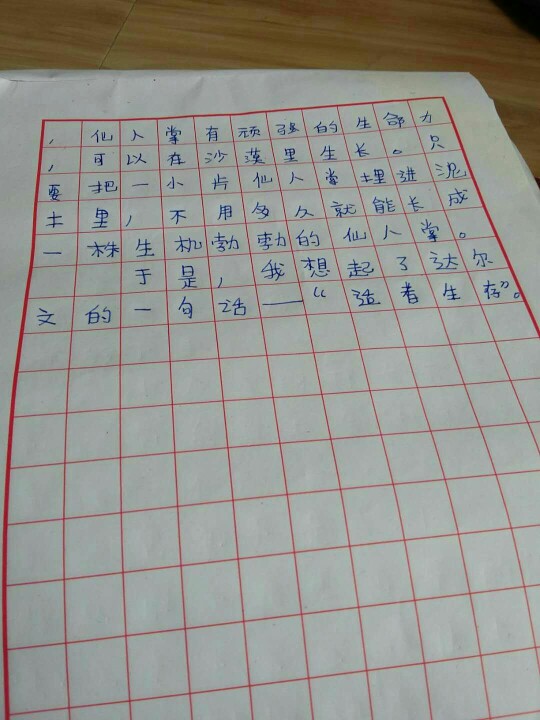 ，仙人掌有顽强的生命力
，可以在沙漠里生长。只
要把一小片仙人掌埋进泥
土里，不用多久就能长成
一株生机勃勃的仙人掌。
于是，我想起了达尔
文的一句话——“适者生存”。